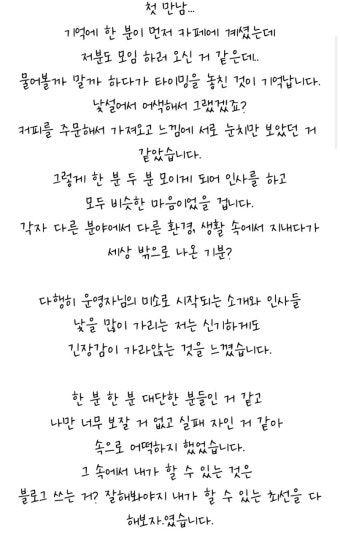 첫 만남...
기억에 한 분이 먼저 카페에 계셨는데
저분도 모임 하러 오신 거 같은데..
물어볼까 말까 하다가 타이밍을 놓친 것이 기억납니다.
낯설어서 어색해서 그랬겠죠?
커피를 주문해서 가져오고 느낌에 서로 눈치만 보았던 거
같았습니다.
그렇게 한 분 두 분 모이게 되어 인사를 하고
모두 비슷한 마음이었을 겁니다.
각자 다른 분야에서 다른 환경, 생활 속에서 지내다가
세상 밖으로 나온 기분?
다행히 운영자님의 미소로 시작되는 소개와 인사들
낯을 많이 가리는 저는 신기하게도
긴장감이 가라앉는 것을 느꼈습니다.
한 분 한 분 대단한 분들인 거 같고
나만 너무 보잘 거 없고 실패 자인 거 같아
속으로 어떡하지 했었습니다.
그 속에서 내가 할 수 있는 것은
블로그 쓰는 거? 잘해봐야지 내가 할 수 있는 최선을 다
해보자.였습니다.